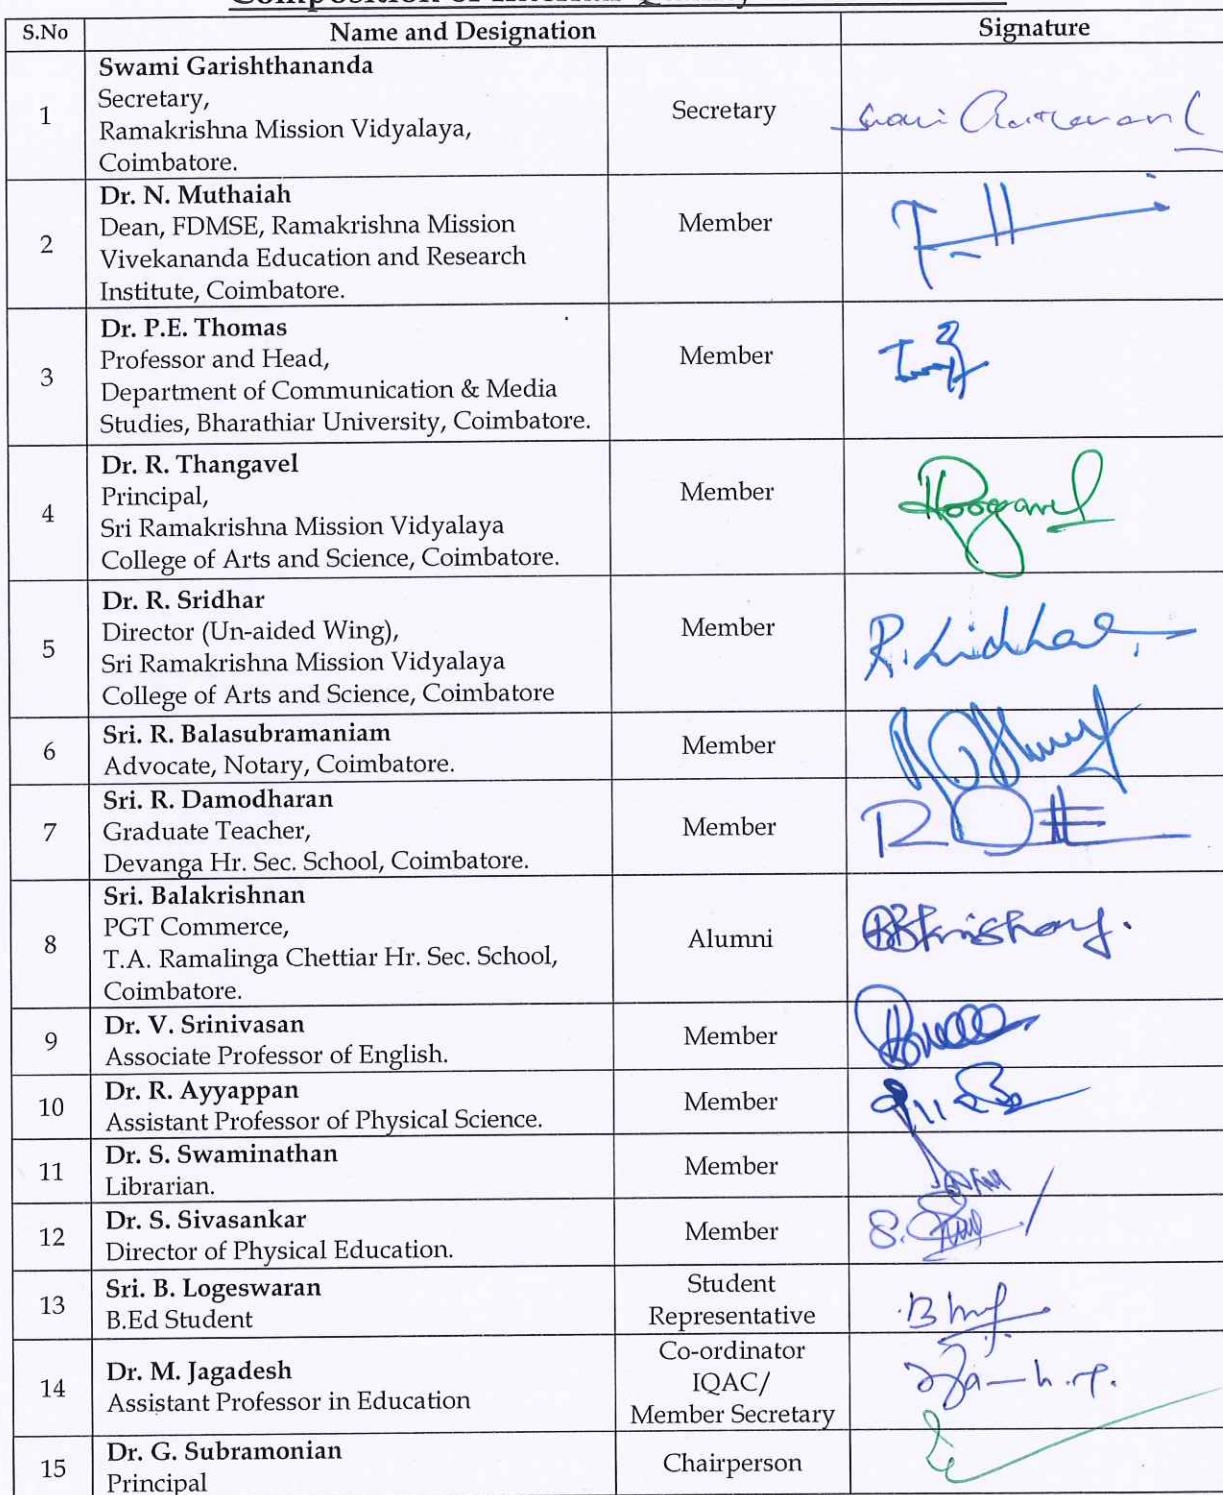 Composition of Internal Quality
S.No Name and Designation Signature
1 Swami Garishthananda
Secretary,
Ramakrishna Mission Vidyalaya,
Coimbatore.
Secretary
2 Dr. N. Muthaiah
Dean, FDMSE, Ramakrishna Mission
Vivekananda Education and Research
Institute, Coimbatore.
Member
3 Dr. P.E. Thomas
Professor and Head,
Department of Communication & Media
Studies, Bharathiar University, Coimbatore.
Member
4 Dr. R. Thangavel
Principal,
Sri Ramakrishna Mission Vidyalaya
College of Arts and Science, Coimbatore.
Member
5 Dr. R. Sridhar
Director (Un-aided Wing),
Sri Ramakrishna Mission Vidyalaya
College of Arts and Science, Coimbatore
Member
6 Sri. R. Balasubramaniam
Advocate, Notary, Coimbatore.
Member
7 Sri. R. Damodharan
Graduate Teacher,
Devanga Hr. Sec. School, Coimbatore.
Member
8 Sri. Balakrishnan
PGT Commerce,
T.A. Ramalinga Chettiar Hr. Sec. School,
Coimbatore.
Alumni
9 Dr. V. Srinivasan
Associate Professor of English.
Member
10 Dr. R. Ayyappan
Assistant Professor of Physical Science.
Member
11 Dr. S. Swaminathan
Librarian.
Member
12 Dr. S. Sivasankar
Director of Physical Education.
Member
13 Sri. B. Logeswaran
B.Ed Student
Student
Representative
14 Dr. M. Jagadesh
Assistant Professor in Education
Co-ordinator
IQAC/
Member Secretary
15 Dr. G. Subramonian
Principal
Chairperson